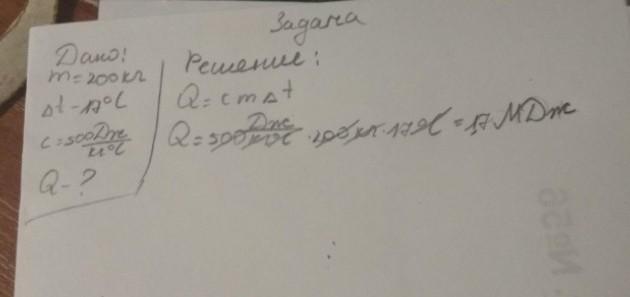 Задача
Дано:
m=200кг
Δt-17°C
c=500Дж/кг°C
Q-?
Решение:
Q=cmΔt
Q=500Дж/кг°C·200кг·17°C=1,7МДж
№56